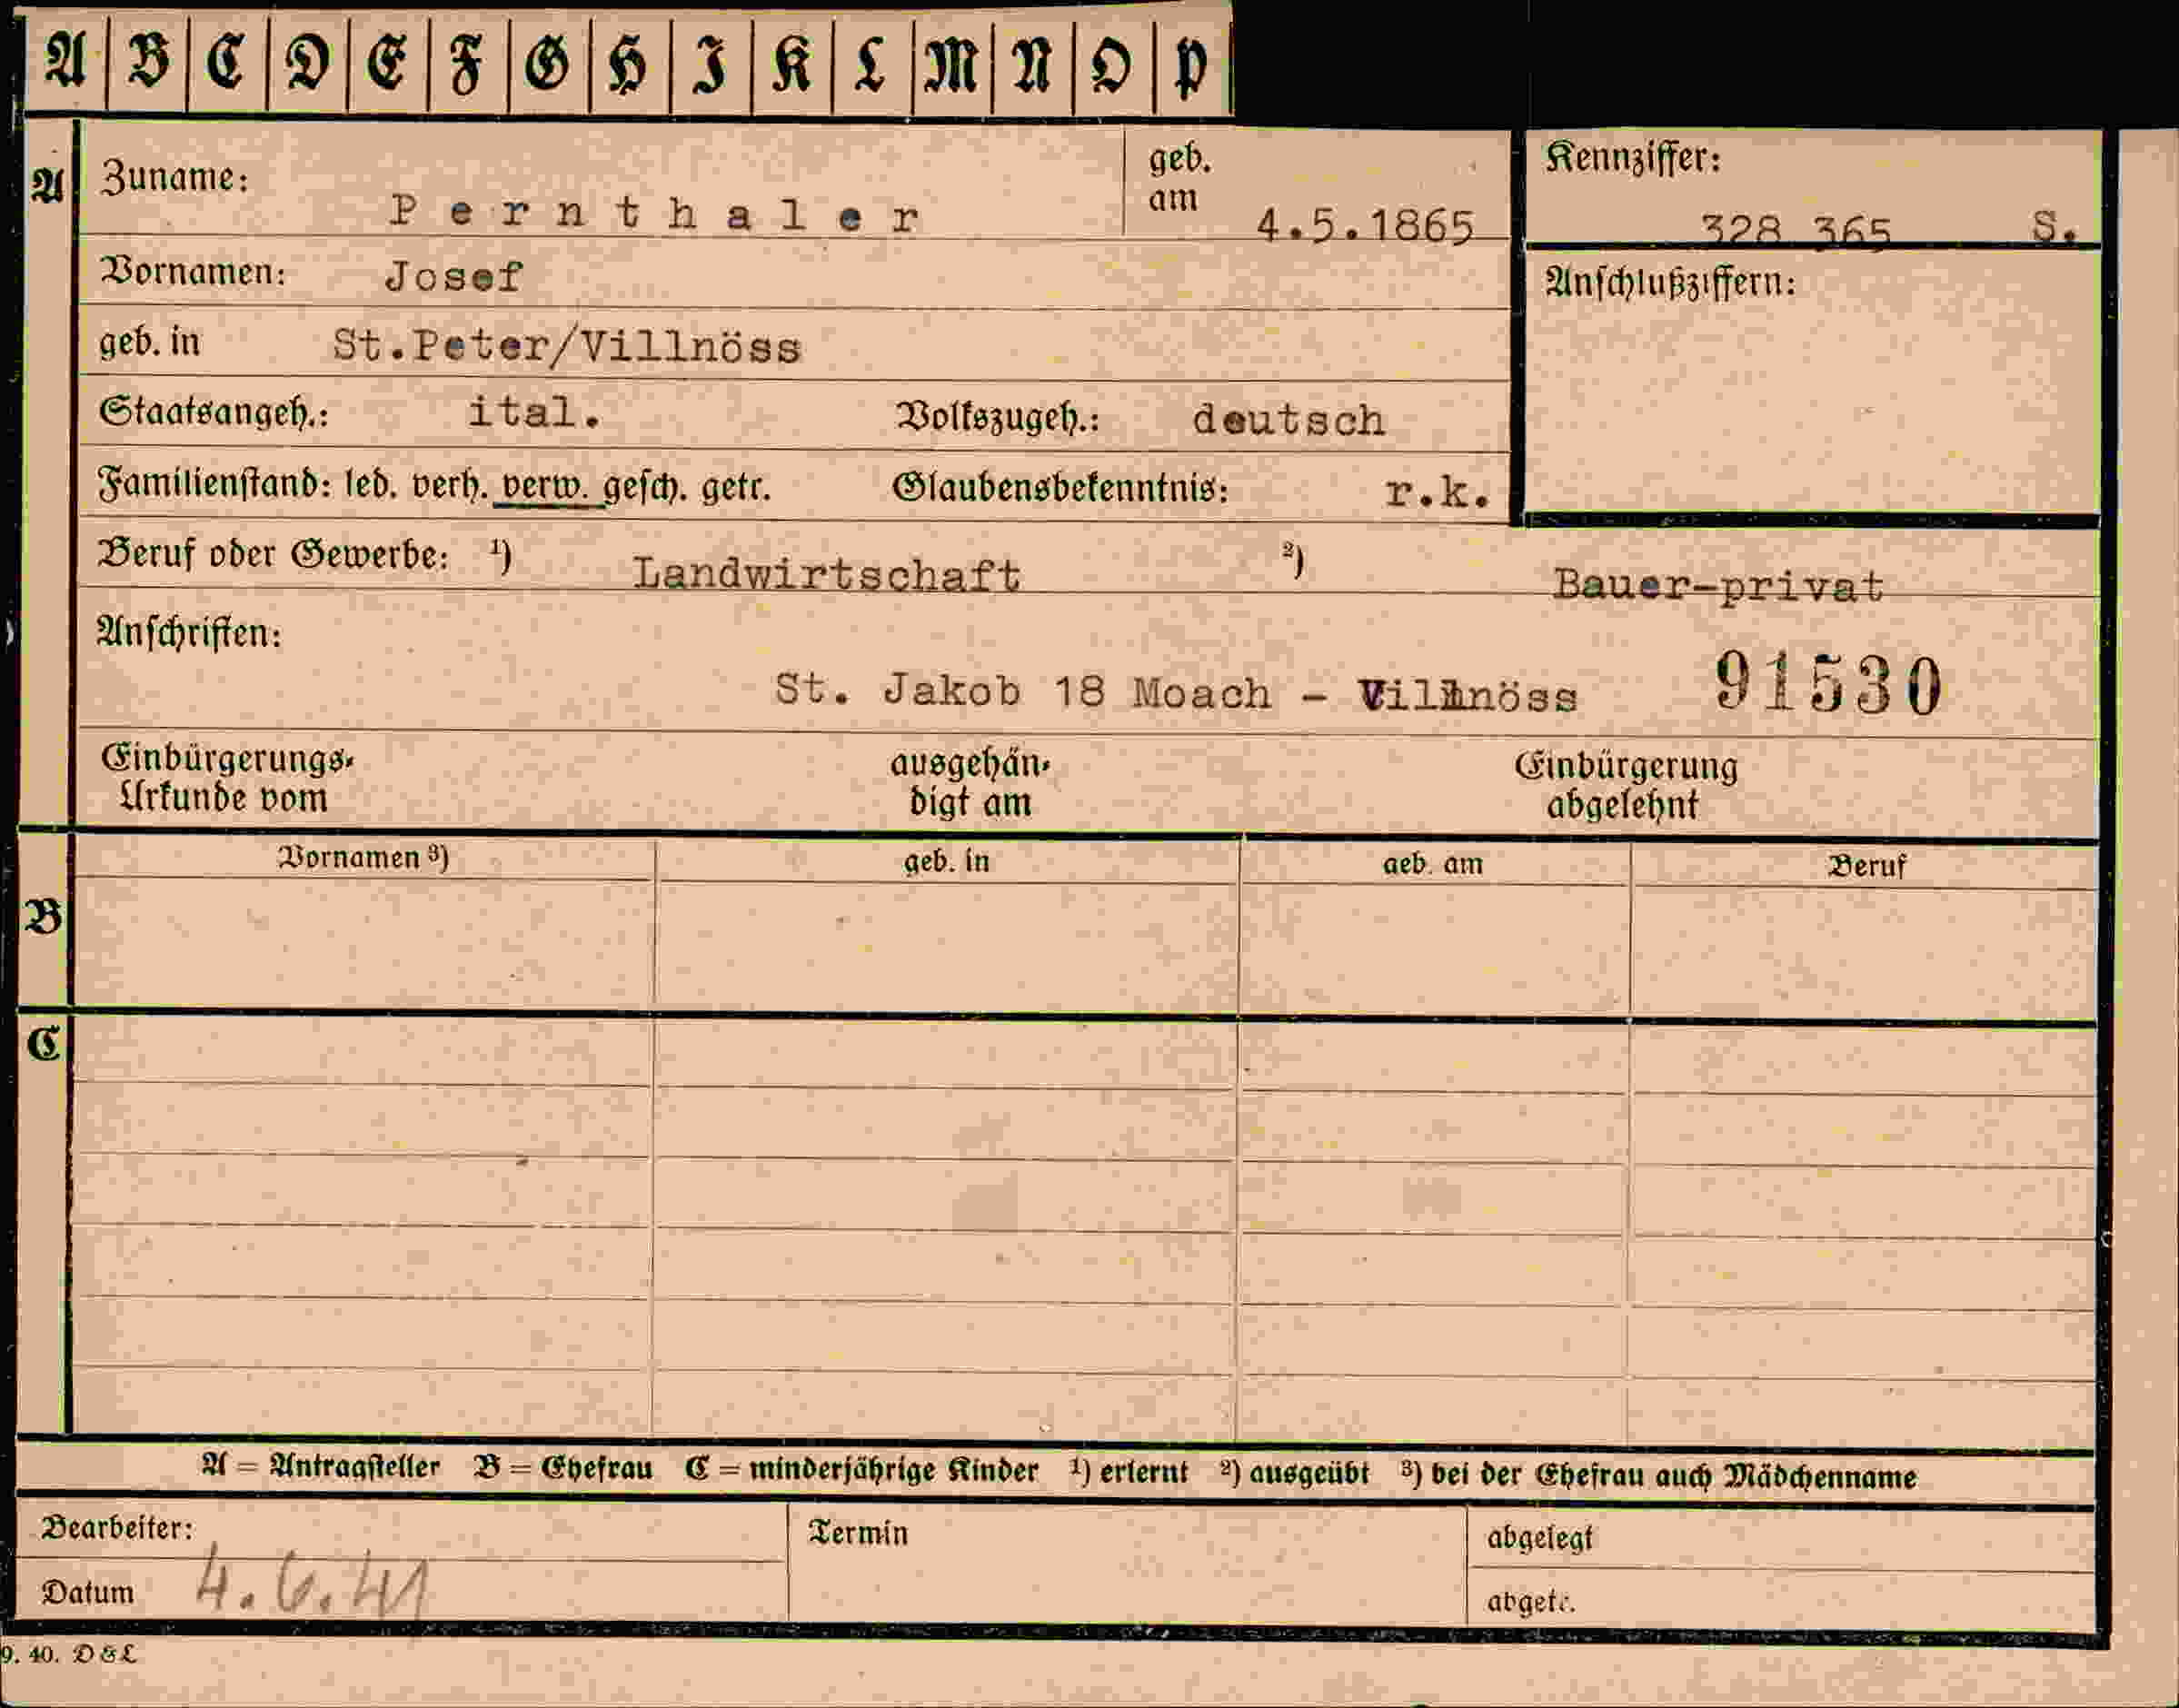 A B C D E F G H I K L M N O P
A Zuname: Pernthaler geb. am 4.5.1865 Kennziffer: 328 365 S.
Vornamen: Josef Anschlußziffern:
geb. in St.Peter/Villnöss
Staatsangeh.: ital. Volkszugeh.: deutsch
Familienstand: led. verh. verw. gesch. getr. Glaubensbekenntnis: r.k.
Beruf oder Gewerbe: ¹) Landwirtschaft ²) Bauer-privat
Anschriften:
St. Jakob 18 Moach - Villnöss 91530
Einbürgerungs- ausgehän- Einbürgerung
Urkunde vom digt am abgelehnt
Vornamen ³) geb. in geb. am Beruf
B
C
A = Antragsteller B = Ehefrau C = minderjährige Kinder ¹) erlernt ²) ausgeübt ³) bei der Ehefrau auch Mädchenname
Bearbeiter: Termin abgelegt
Datum 4.6.41 abgetr.
9. 40. D & L